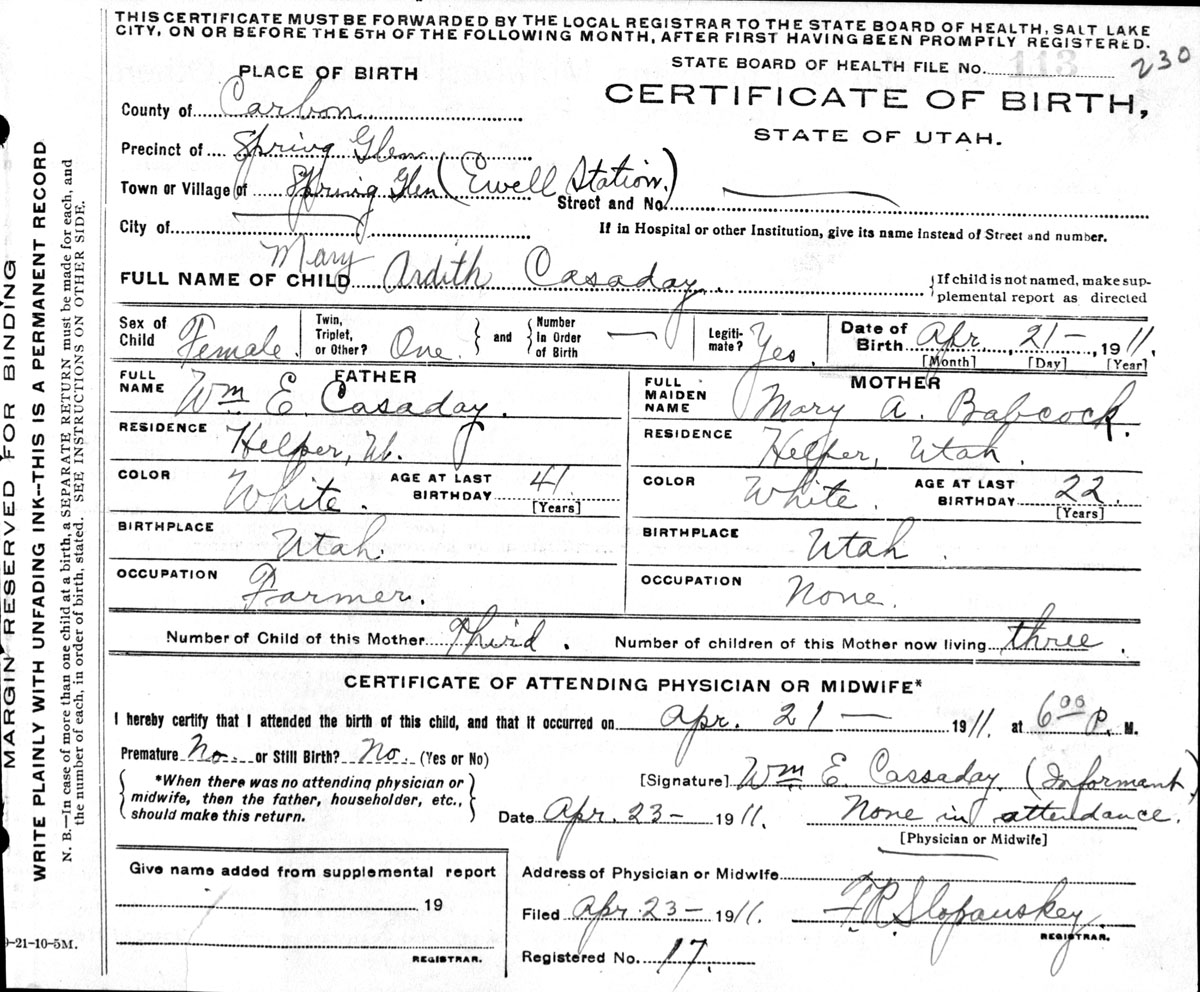 THIS CERTIFICATE MUST BE FORWARDED BY THE LOCAL REGISTRAR TO THE STATE BOARD OF HEALTH, SALT LAKE
CITY, ON OR BEFORE THE 5TH OF THE FOLLOWING MONTH, AFTER FIRST HAVING BEEN PROMPTLY REGISTERED.
STATE BOARD OF HEALTH FILE No. 113 230
PLACE OF BIRTH
CERTIFICATE OF BIRTH,
STATE OF UTAH.
County of Carbon
Precinct of Spring Glen
Town or Village of Spring Glen (Ewell Station.)
Street and No.
City of
If in Hospital or other Institution, give its name instead of Street and number.
FULL NAME OF CHILD Mary Ardith Casaday.
{If child is not named, make sup-
plemental report as directed
Sex of Child Female. Twin, Triplet, or Other? One. } and { Number In Order of Birth — Legiti-mate? Yes. Date of Birth Apr. 21 — 1911.
[Month] [Day] [Year]
FATHER
FULL NAME Wm E. Casaday.
RESIDENCE Helper, Ut.
COLOR White. AGE AT LAST BIRTHDAY 41
[Years]
BIRTHPLACE Utah.
OCCUPATION Farmer.
MOTHER
FULL MAIDEN NAME Mary A. Babcock.
RESIDENCE Helper, Utah.
COLOR White. AGE AT LAST BIRTHDAY 22
[Years]
BIRTHPLACE Utah.
OCCUPATION None.
Number of Child of this Mother Third. Number of children of this Mother now living three.
CERTIFICATE OF ATTENDING PHYSICIAN OR MIDWIFE*
I hereby certify that I attended the birth of this child, and that it occurred on Apr. 21 — 1911. at 6 00 P. M.
Premature No. or Still Birth? No. (Yes or No)
{ *When there was no attending physician or
midwife, then the father, householder, etc.,
should make this return. }
[Signature] Wm E. Cassaday. (Informant)
Date Apr. 23 — 1911. None in attendance.
[Physician or Midwife]
Give name added from supplemental report
19
REGISTRAR.
Address of Physician or Midwife
Filed Apr. 23 — 1911. F.R. Slopanskey
REGISTRAR.
Registered No. 17.
9-21-10-5M.
MARGIN RESERVED FOR BINDING
WRITE PLAINLY WITH UNFADING INK--THIS IS A PERMANENT RECORD
N. B.—In case of more than one child at a birth, a SEPARATE RETURN must be made for each, and
the number of each, in order of birth, stated. SEE INSTRUCTIONS ON OTHER SIDE.